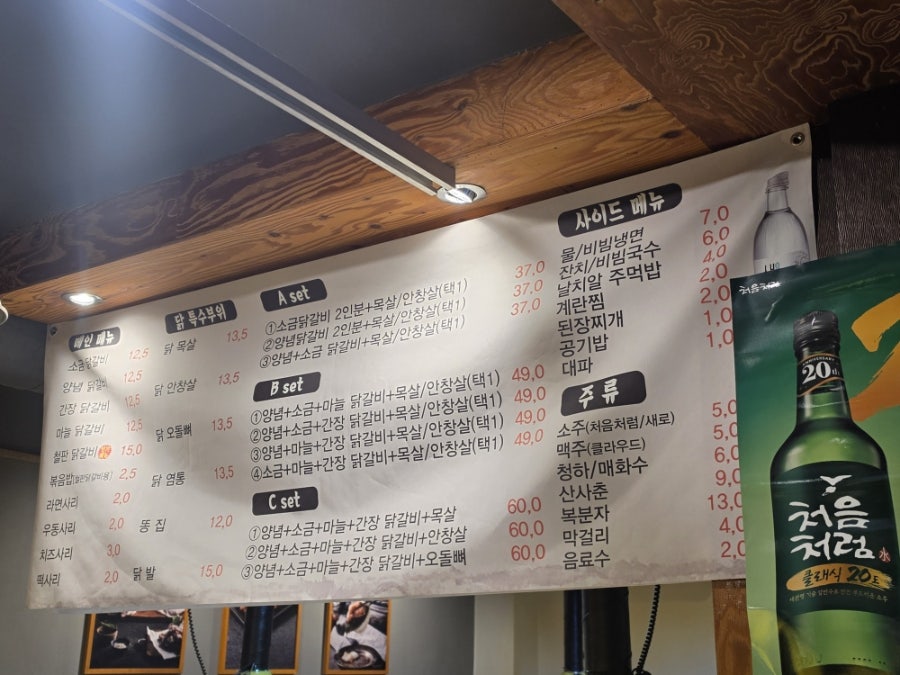 메인 메뉴
소금닭갈비 12,5
양념 닭갈비 12,5
간장 닭갈비 12,5
마늘 닭갈비 12,5
철판 닭갈비 15,0
볶음밥(철판닭갈비용) 2,5
라면사리 2,0
우동사리 2,0
치즈사리 3,0
떡사리 2,0
닭 특수부위
닭 목살 13,5
닭 안창살 13,5
닭 오돌뼈 13,5
닭 염통 13,5
똥 집 12,0
닭 발 15,0
A set
①소금닭갈비 2인분+목살/안창살(택1) 37,0
②양념닭갈비 2인분+목살/안창살(택1) 37,0
③양념+소금 닭갈비+목살/안창살(택1) 37,0
B set
①양념+소금+마늘 닭갈비+목살/안창살(택1) 49,0
②양념+소금+간장 닭갈비+목살/안창살(택1) 49,0
③양념+마늘+간장 닭갈비+목살/안창살(택1) 49,0
④소금+마늘+간장 닭갈비+목살/안창살(택1) 49,0
C set
①양념+소금+마늘+간장 닭갈비+목살 60,0
②양념+소금+마늘+간장 닭갈비+안창살 60,0
③양념+소금+마늘+간장 닭갈비+오돌뼈 60,0
사이드 메뉴
물/비빔냉면 7,0
잔치/비빔국수 6,0
날치알 주먹밥 4,0
계란찜 2,0
된장찌개 2,0
공기밥 1,0
대파 1,0
주 류
소주(처음처럼/새로) 5,0
맥주(클라우드) 5,0
청하/매화수 6,0
산사춘 9,0
복분자 13,0
막걸리 4,0
음료수 2,0
처음처럼
ANNIVERSARY
20th
처음
처럼
클래식 20도